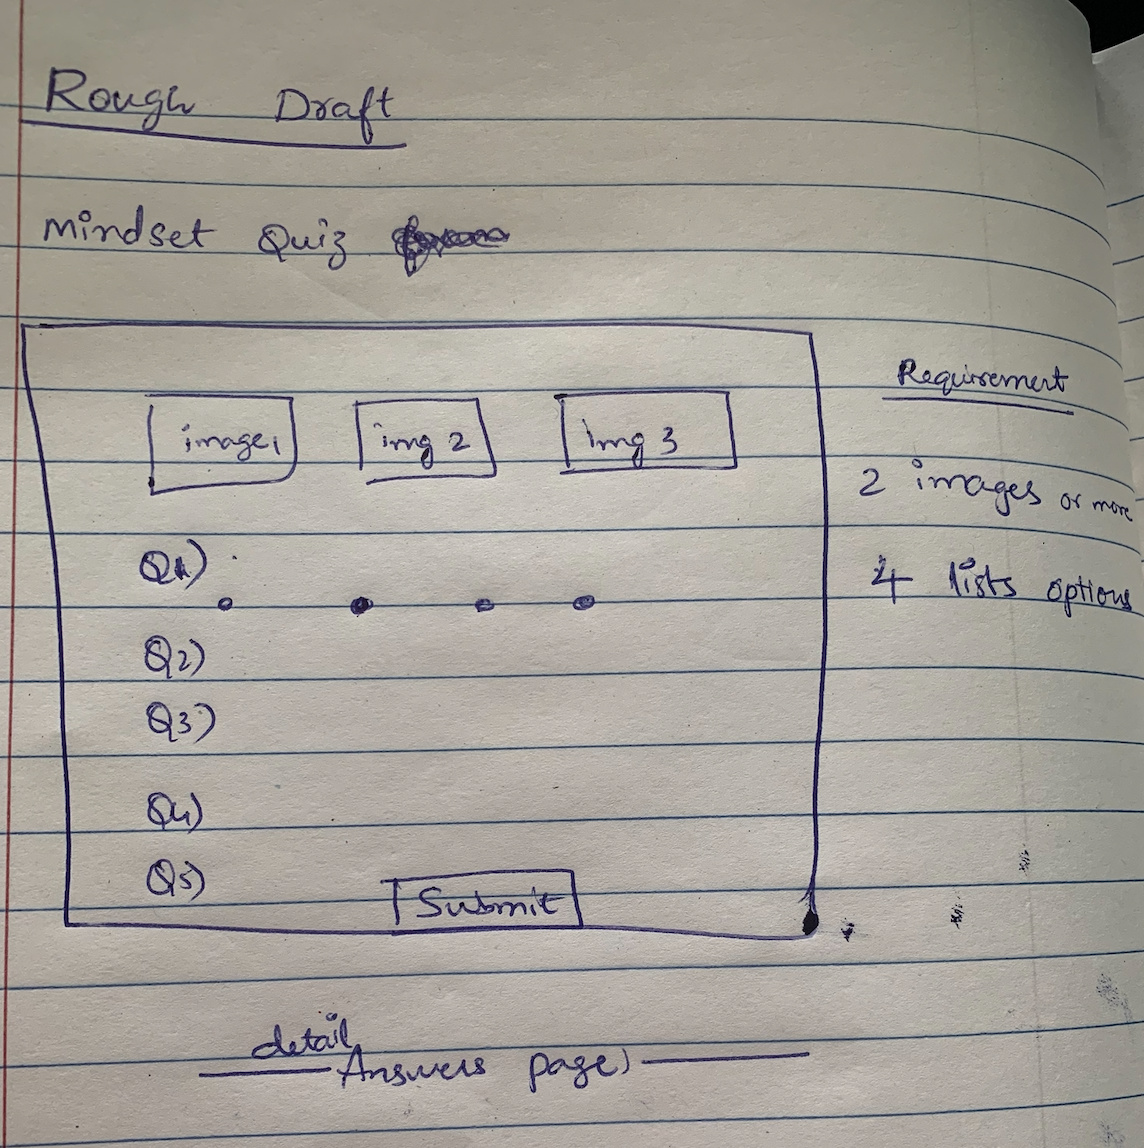 Rough Draft
Mindset Quiz
image1 img 2 img 3
Q1)
Q2)
Q3)
Q4)
Q5)
Submit
Requirement
2 images or more
4 lists options
detail
Answers page)